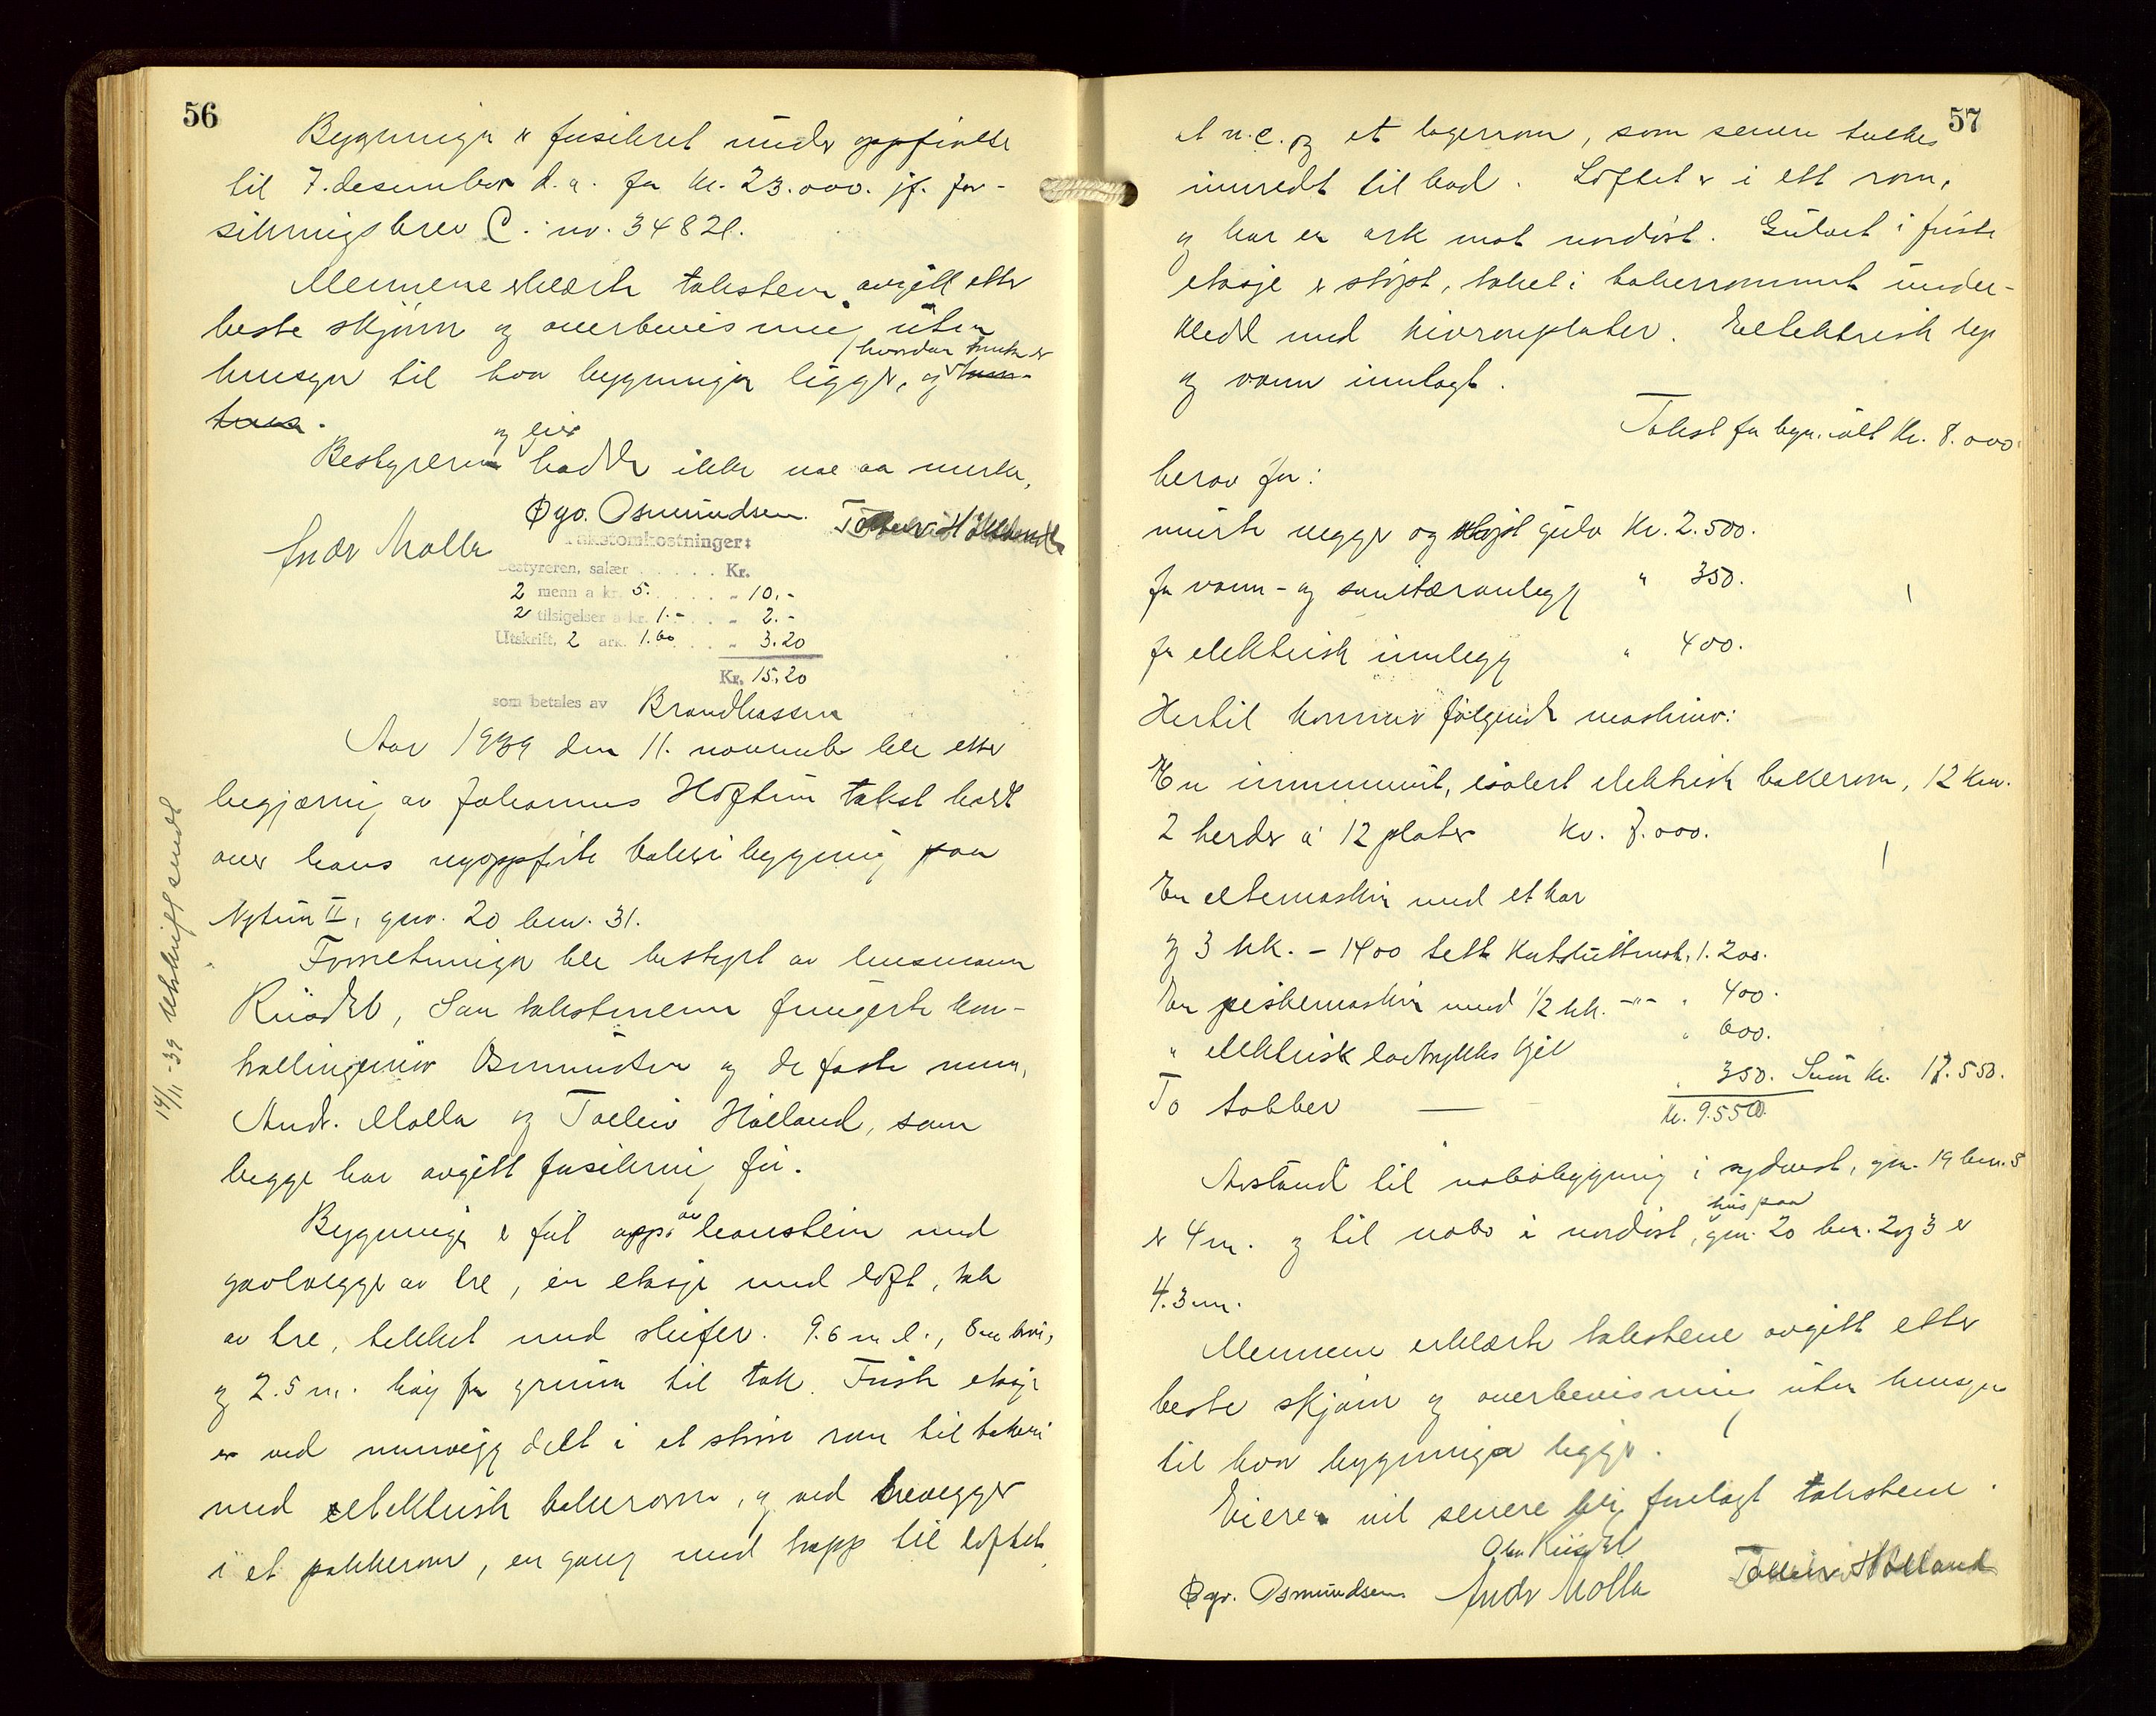 56
Bygningen er forsikret under oppførelse
til 7. desember d.a. for kr. 23.000. jf. for-
sikringsbrev C. nr. 34821.
Mennene erklærte taksten avgitt etter
beste skjønn og overbevisning uten
hvordan bruken er
hensyn til hvor bygningen ligger, og
og eier
Bestyreren hadde ikke noe aa merke.
Øgo. Osmundsen. Tolleiv Hølland
Andr Molla
Takstomkostninger:
Bestyreren, salær . . . . . Kr.
2 menn a kr. 5. . . . . " 10.-
2 tilsigelser a kr. 1.- . . " 2.-
Utskrift, 2 ark. 1.60 . . . " 3.20
Kr. 15.20
som betales av Brandkassen
Aar 1939 den 11. november ble etter
begjæring av Johannes Høftun takst holdt
over hans nyoppførte bakeribygning paa
Nytun II, gnr. 20 bnr. 31.
Forretningen ble bestyrt av lensmann
Riisdal, Som takstmenn fungerte kon-
trollingeniør Osmundsen og de faste menn,
Andr. Molla og Tolleiv Hølland, som
begge har avgitt forsikring før.
av
Bygningen er ført opp leonstein med
gavlvegger av tre, en etasje med loft, tak
av tre, tekket med skifer. 9.6 m l., 8 m br.,
og 2.5 m. høy fra grunn til tak. Første etasje
er ved murvegg delt i et større rom til bakeri
med elektrisk bakerovn, og ved trevegger
i et pakkerom, en gang med trapp til loftet,
14/11-39 Utskrift sendt
57
et w.c. og et lagerrom, som senere tenkes
innredt til bad. Loftet er i ett rom,
og har en ark mot nordøst. Gulvet i første
etasje er støpt, taket i bakerrommet under-
kledd med hivronplater. Ellektrisk lys
og vann innlagt.
Takst for bygn. i alt kr. 8.000.
herav for:
murte vegger og støpt gulv Kr. 2.500.
for vann- og sanitæranlegg " 350.
for elektrisk innlegg " 400.
Hertil kommer følgende maskiner:
En innemurt, isolert elektrisk bakerovn, 12 kw.
2 herder à 12 plater Kr. 7.000.
En eltemaskin med et kar
og 3 hk. - 1400 1.200.
En piskemaskin med 1/2 hk. -"- " 400.
" elektrisk lavtrykks kjel " 600.
To tobber " 350. Sum kr. 17.550.
kr. 9.550.
Avstand til nabobygning i sydvest, gnr. 19 bnr. 5
hus paa
er 4 m. og til nabo i nordøst, gnr. 20 bnr. 2 og 3 er
4.3 m.
Mennene erklærte takstene avgitt etter
beste skjønn og overbevisning uten hensyn
til hvor bygningen ligger.
Eieren vil senere bli forelagt takstene.
Olav Riisdal
Øgo. Osmundsen Andr Molla Tolleiv Hølland